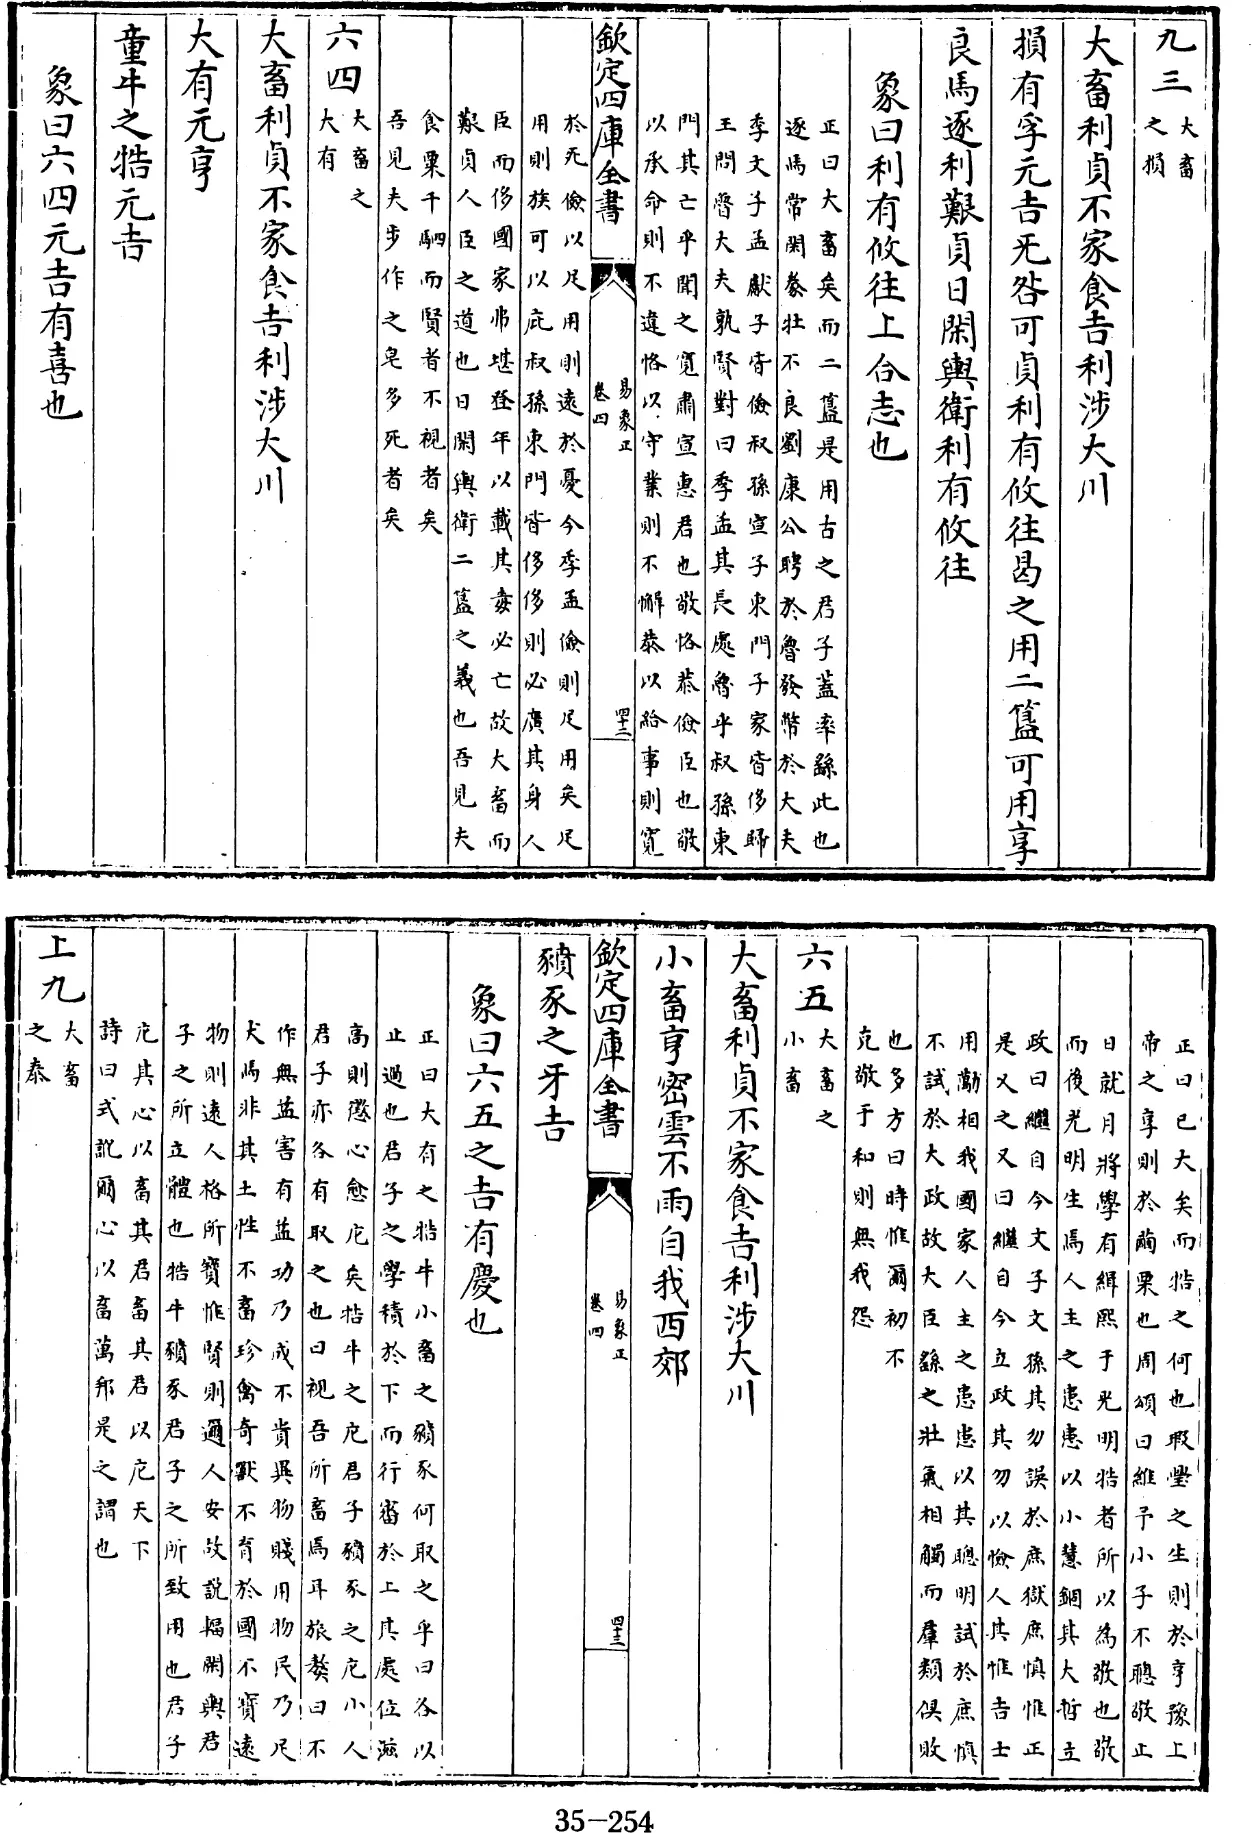 九三 大畜
之損
大畜利貞不家食吉利涉大川
損有孚元吉旡咎可貞利有攸往曷之用二簋可用享
良馬逐利艱貞日閑輿衛利有攸往
象曰利有攸往上合志也
正曰大畜矣而二簋是用古之君子蓋率繇此也
逐馬常閑豢牡不良劉康公聘於魯發幣於大夫
季文子孟獻子皆儉叔孫宣子東門子家皆侈歸
王問魯大夫孰賢對曰季孟其長處魯乎叔孫東
門其亡乎聞之寬肅宣惠君也敬恪恭儉臣也敬
以承命則不違恪以守業則不懈恭以給事則寬
欽定四庫全書
易象正
卷四
四十二
於死儉以足用則遠於憂今季孟儉則足用矣足
用則族可以庇叔孫東門皆侈侈則必廣其身人
臣而侈國家弗堪登年以載其毒必亡故大畜而
艱貞人臣之道也日閑輿衛二簋之義也吾見夫
食粟千駟而賢者不視者矣
吾見夫步作之皂多死者矣
六四 大畜之
大有
大畜利貞不家食吉利涉大川
大有元亨
童牛之牿元吉
象曰六四元吉有喜也
正曰已大矣而牿之何也瑕舋之生則於亨豫上
帝之享則於繭栗也周頌曰維予小子不聰敬止
日就月將學有緝熙于光明牿者所以為敬也敬
而後光明生焉人主之患患以小慧錮其大哲立
政曰繼自今文子文孫其勿誤於庶獄庶慎惟正
是乂之又曰繼自今立政其勿以憸人其惟吉士
用勱相我國家人主之患患以其聰明試於庶慎
不試於大政故大臣繇之壯氣相觸而羣類俱敗
也多方曰時惟爾初不
克敬于和則無我怨
六五 大畜之
小畜
大畜利貞不家食吉利涉大川
小畜亨密雲不雨自我西郊
欽定四庫全書
易象正
卷四
四十三
豶豕之牙吉
象曰六五之吉有慶也
正曰大有之牿牛小畜之豶豕何取之乎曰各以
止過也君子之學積於下而行畜於上其處位滋
高則懲心愈庀矣牿牛之庀君子豶豕之庀小人
君子亦各有取之也曰視吾所畜焉耳旅獒曰不
作無益害有益功乃成不貴異物賤用物民乃足
犬馬非其土性不畜珍禽奇獸不育於國不寶遠
物則遠人格所寶惟賢則邇人安故說輻閑輿君
子之所立體也牿牛豶豕君子之所致用也君子
庀其心以畜其君畜其君以庀天下
詩曰式訛爾心以畜萬邦是之謂也
上九 大畜
之泰
35-254